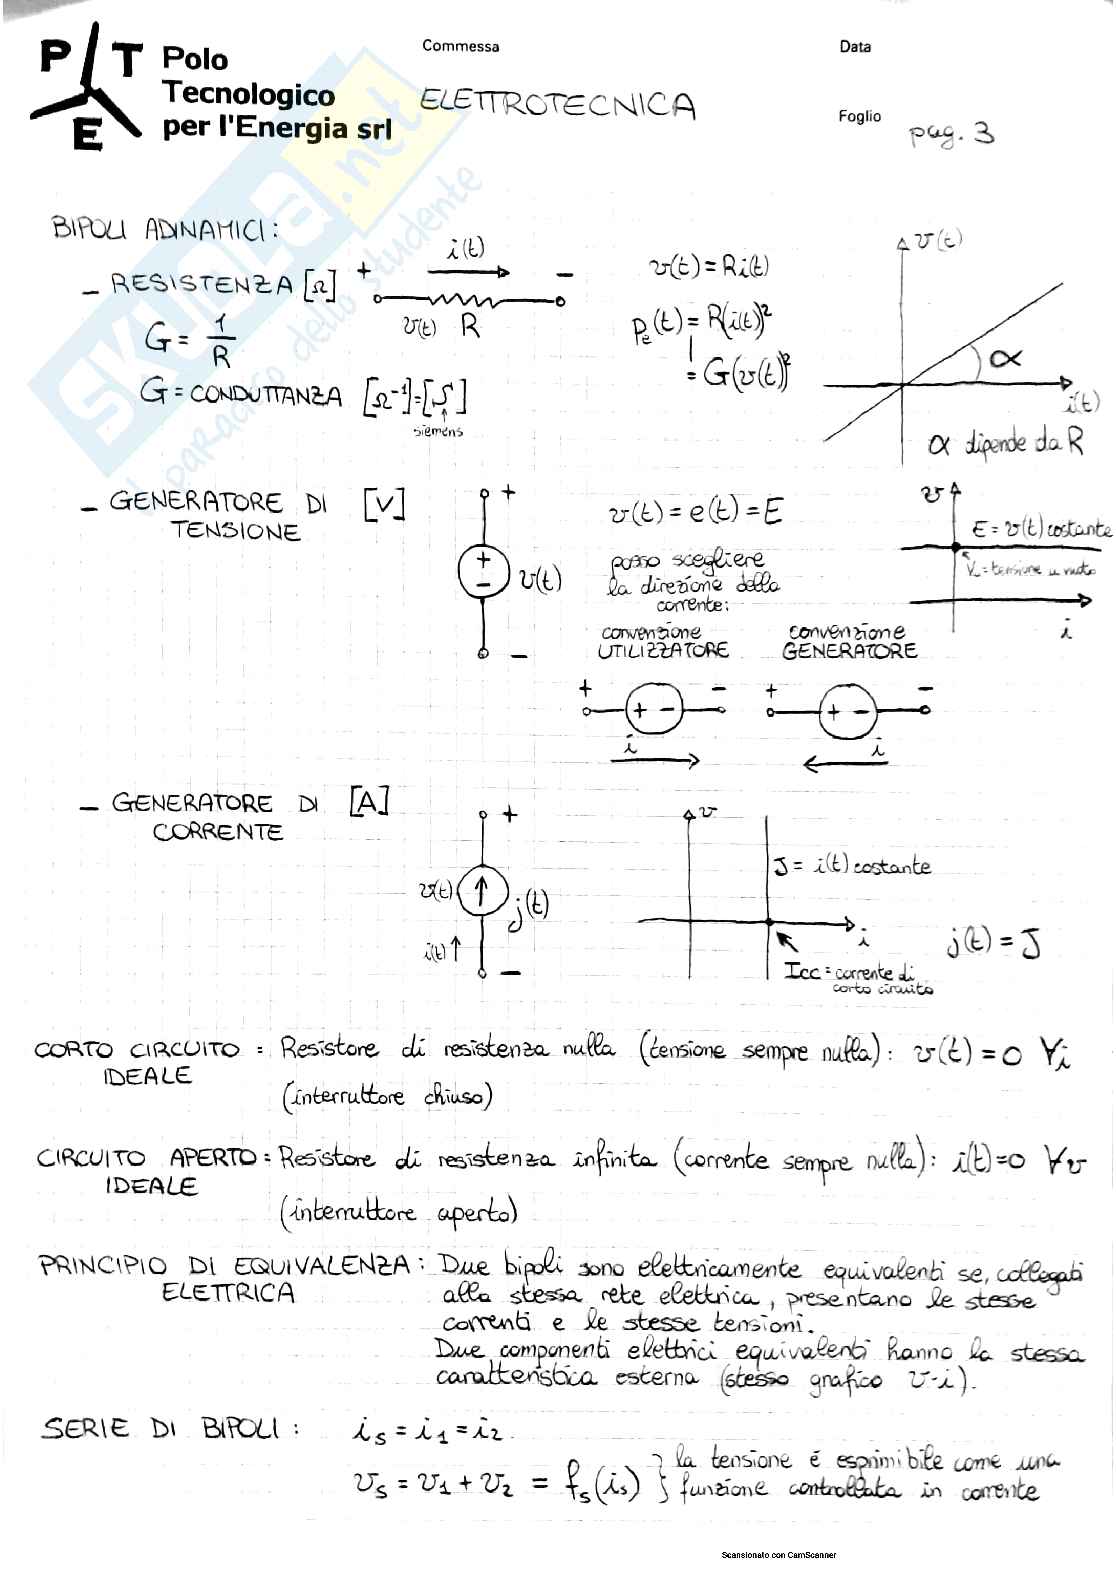 P T E Polo
Tecnologico
per l'Energia srl
Commessa
Data
ELETTROTECNICA
Foglio pag. 3
SKUOLA.net
il paradiso dello studente
BIPOLI ADINAMICI:
- RESISTENZA [Ω]
+ i(t) -
v(t) R
G = 1/R
G = CONDUTTANZA [Ω⁻¹]=[S]
siemens
v(t) = Ri(t)
Pe(t) = R(i(t))²
= G(v(t))²
v(t)
α
i(t)
α dipende da R
- GENERATORE DI [V]
TENSIONE
+
+
-
v(t)
-
v(t) = e(t) = E
posso scegliere
la direzione della
corrente:
convenzione
UTILIZZATORE
convenzione
GENERATORE
+ + - -
i
+ + - -
i
v
E = v(t) costante
i
- GENERATORE DI [A]
CORRENTE
+
v(t) j(t)
i(t)
-
v
J = i(t) costante
i
Icc = corrente di
corto circuito
j(t) = J
CORTO CIRCUITO = Resistore di resistenza nulla (tensione sempre nulla): v(t) = 0 ∀i
IDEALE
(interruttore chiuso)
CIRCUITO APERTO = Resistore di resistenza infinita (corrente sempre nulla): i(t)=0 ∀v
IDEALE
(interruttore aperto)
PRINCIPIO DI EQUIVALENZA: Due bipoli sono elettricamente equivalenti se, collegati
ELETTRICA alla stessa rete elettrica, presentano le stesse
correnti e le stesse tensioni.
Due componenti elettrici equivalenti hanno la stessa
caratteristica esterna (stesso grafico v-i).
SERIE DI BIPOLI: is = i1 = i2
vs = v1 + v2 = fs(is) } la tensione é esprimibile come una
funzione controllata in corrente
Scansionato con CamScanner